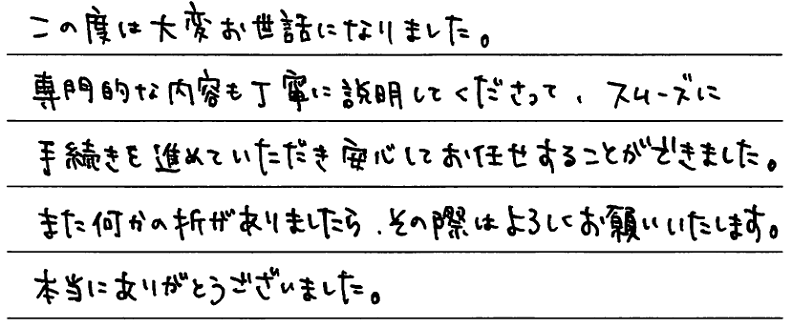 この度は大変お世話になりました。
専門的な内容も丁寧に説明してくださって、スムーズに
手続きを進めていただき安心してお任せすることができました。
また何かの折がありましたら、その際はよろしくお願いいたします。
本当にありがとうございました。